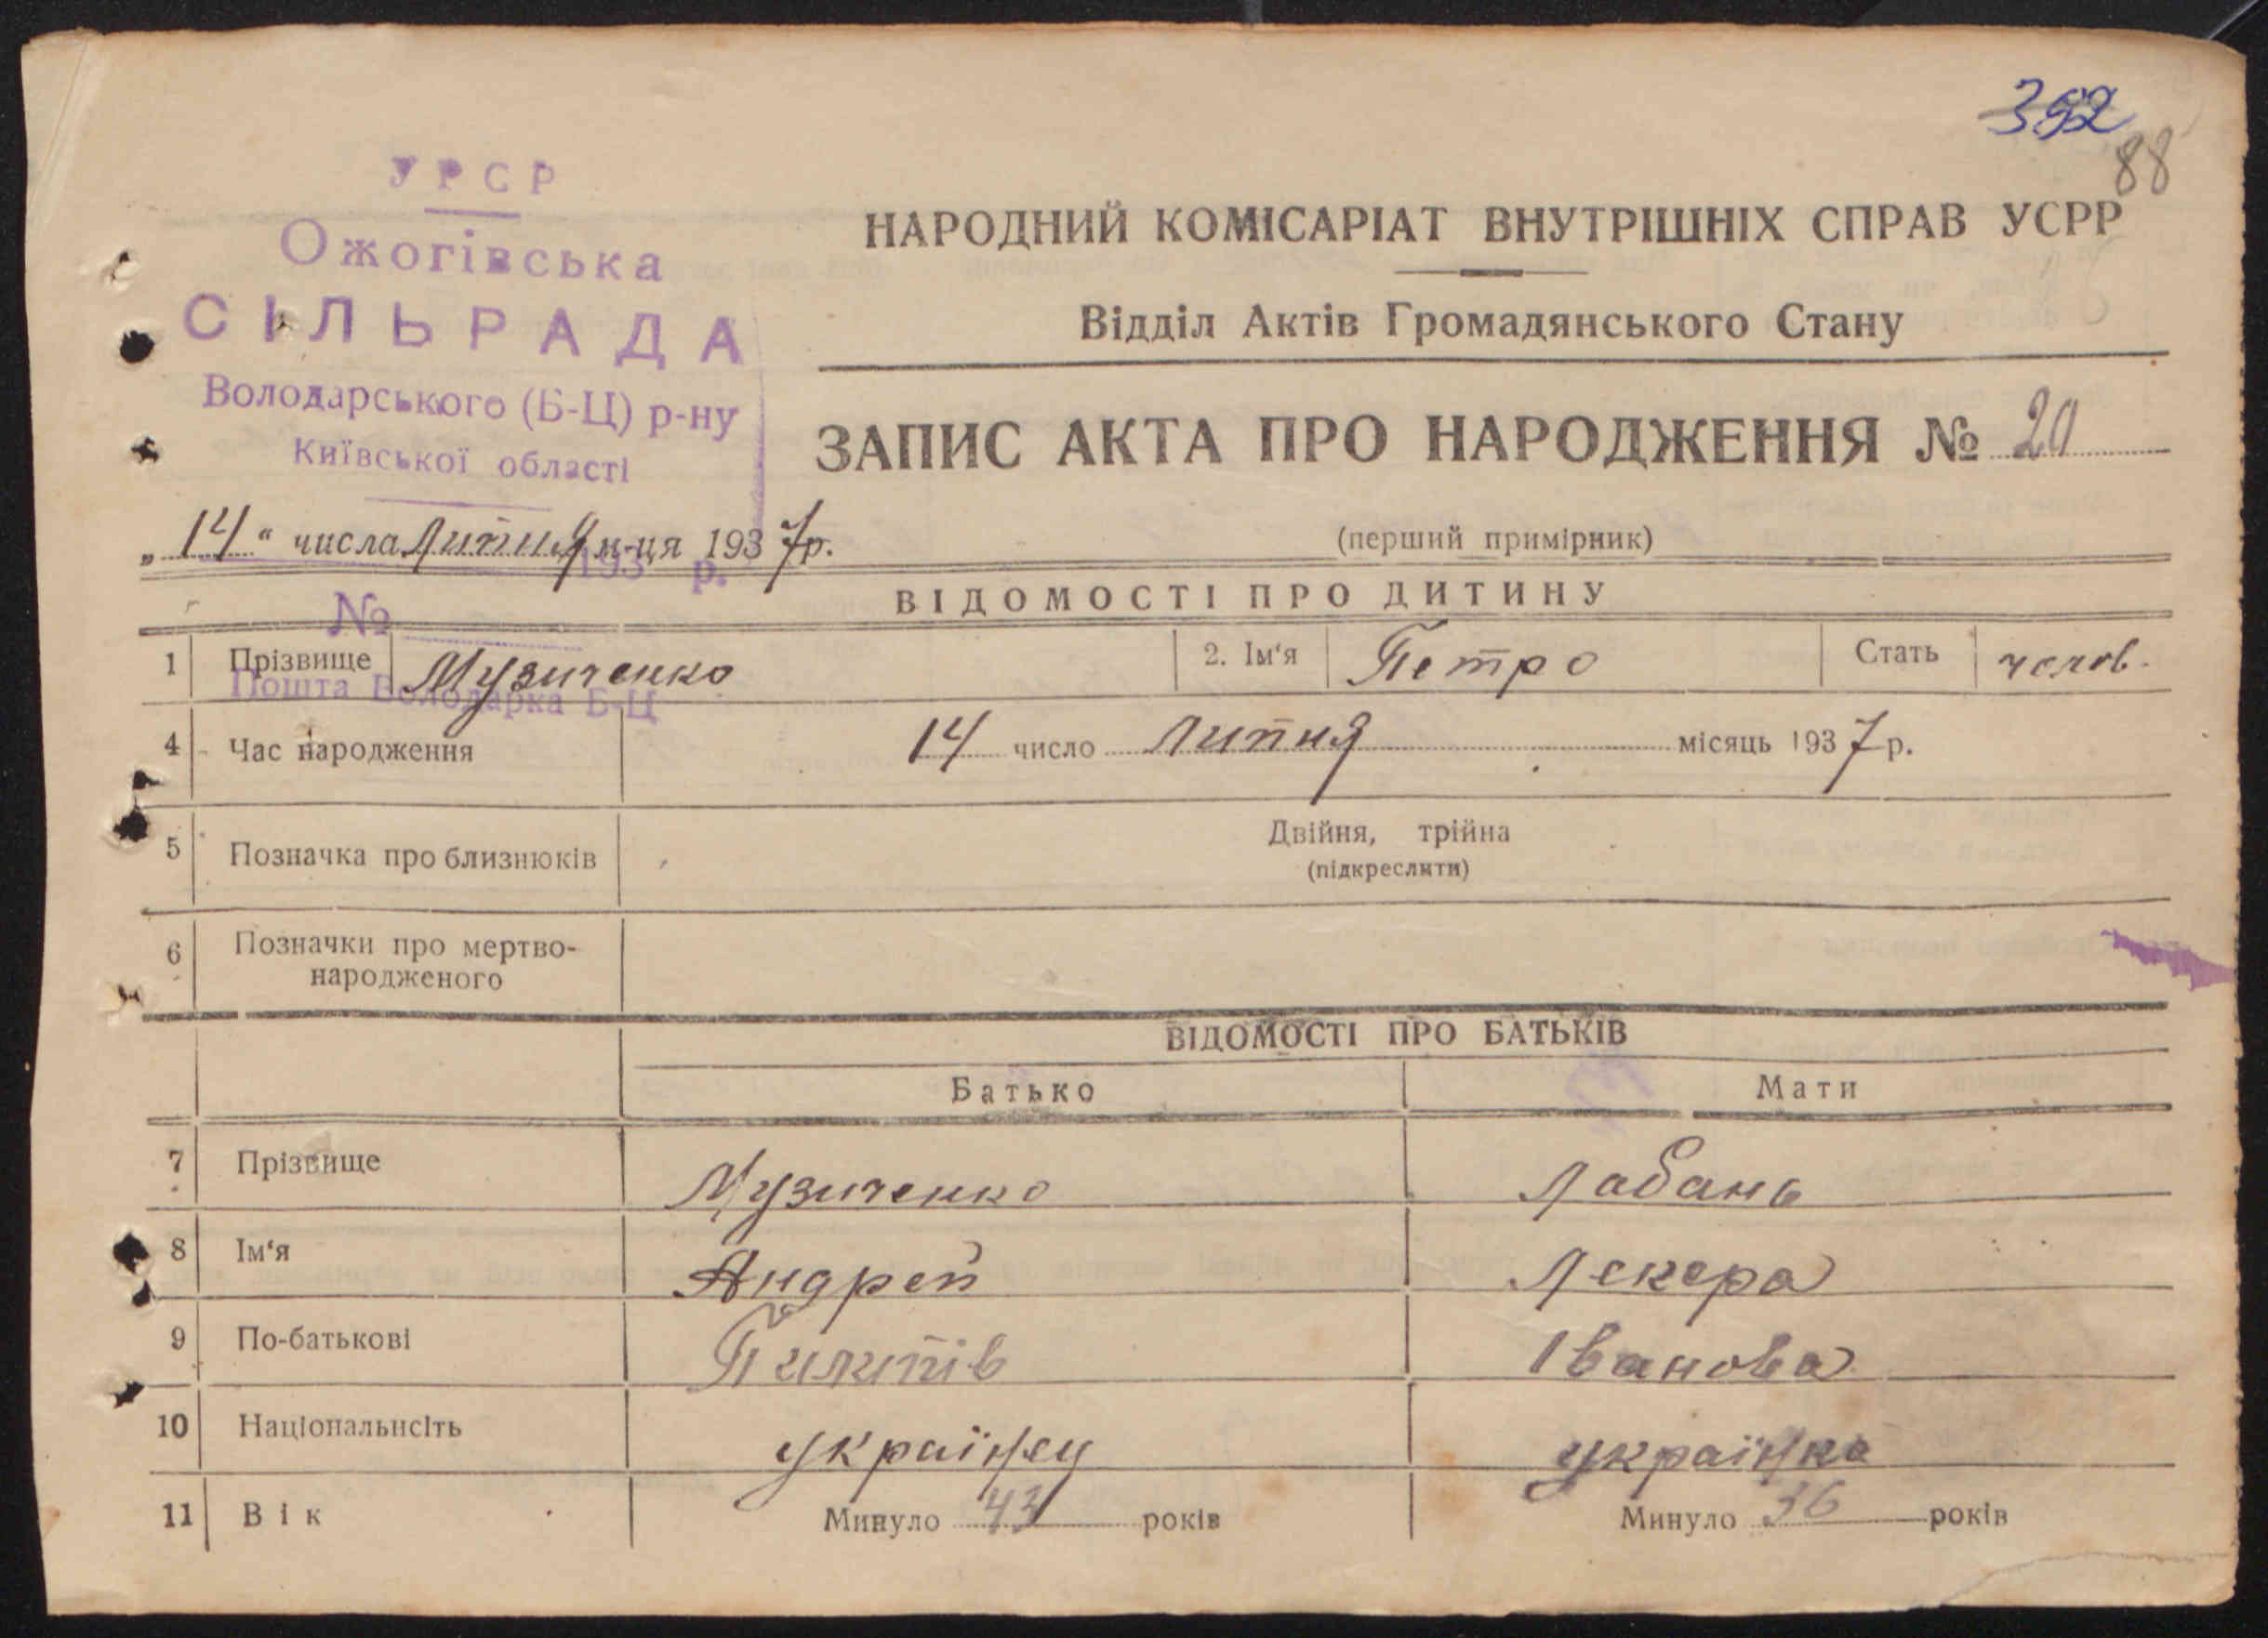 392
88
УРСР
Ожогівська
СІЛЬРАДА
Володарського (Б-Ц) р-ну
Київської області
193 р.
№
Пошта Володарка Б-Ц
НАРОДНИЙ КОМІСАРІАТ ВНУТРІШНІХ СПРАВ УСРР
Відділ Актів Громадянського Стану
ЗАПИС АКТА ПРО НАРОДЖЕННЯ № 20
„14“ числа Липня м-ця 1937р.
(перший примірник)
ВІДОМОСТІ ПРО ДИТИНУ
1 Прізвище Музиченко 2. Ім‘я Петро Стать чолов.
4 Час народження 14 число Липня місяць 1937р.
5 Позначка про близнюків Двійня, трійна
(підкреслити)
6 Позначки про мертво-
народженого
ВІДОМОСТІ ПРО БАТЬКІВ
Батько Мати
7 Прізвище Музиченко Лабань
8 Ім‘я Андрей Лекера
9 По-батькові Пилипів Іванова
10 Національнсіть українец українка
11 Вік Минуло 43 років Минуло 36 років